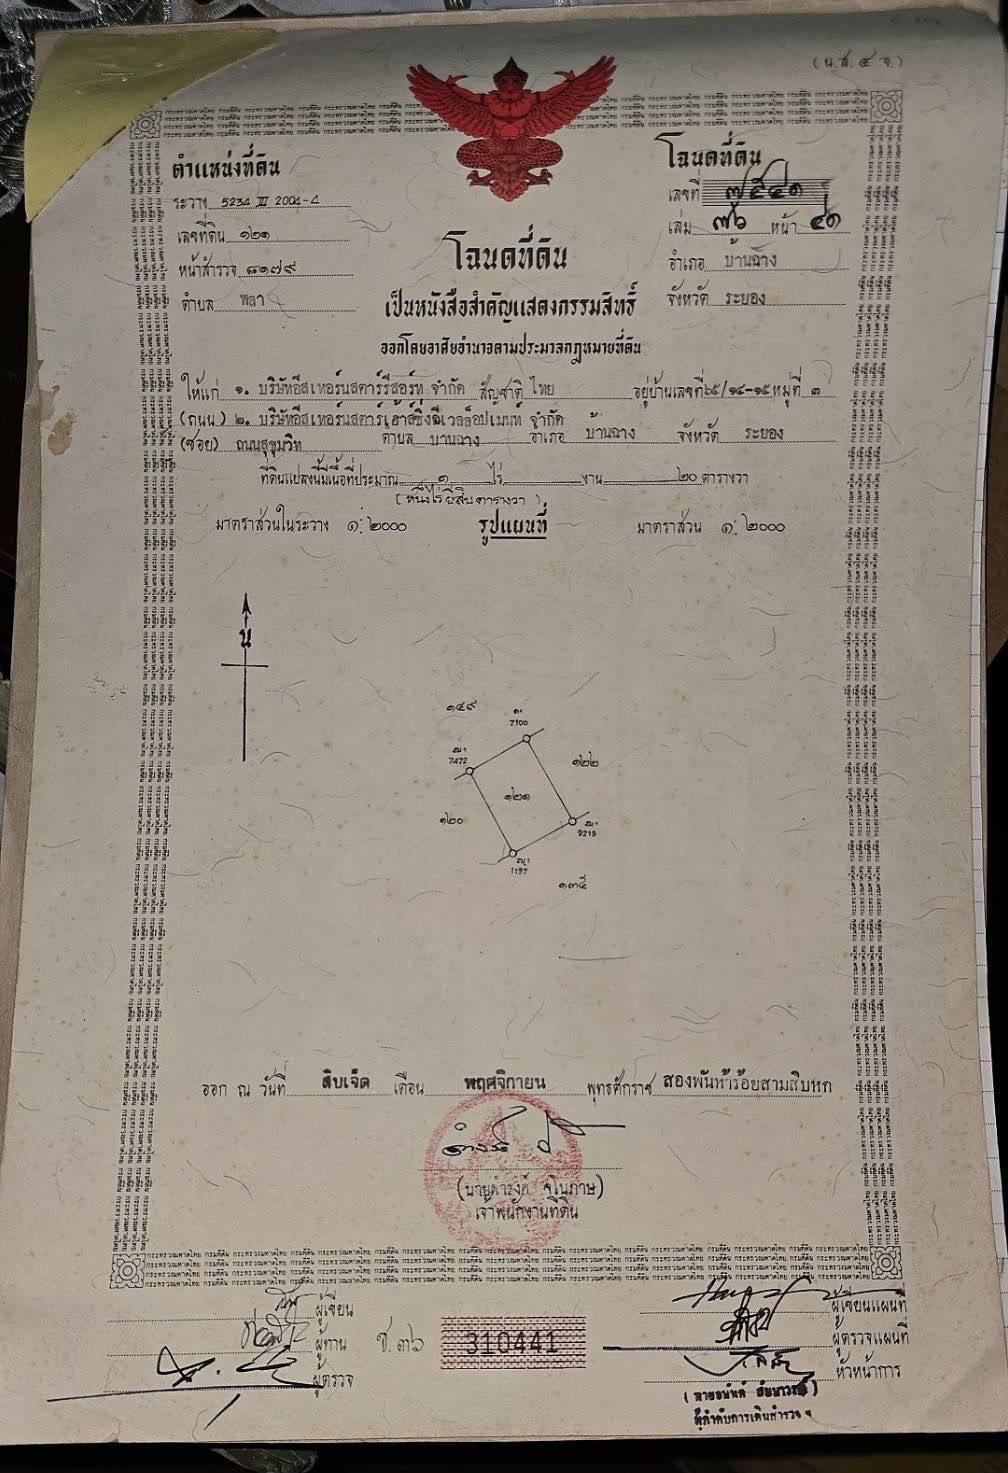 (น.ส. ๔ จ.)
ตำแหน่งที่ดิน
ระวาง 5234 III 2004-4
เลขที่ดิน ๑๒๑
หน้าสำรวจ ๘๑๗๙
ตำบล พลา
โฉนดที่ดิน
เลขที่ ๗๕๔๑
เล่ม ๗๖ หน้า ๔๑
อำเภอ บ้านฉาง
จังหวัด ระยอง
โฉนดที่ดิน
เป็นหนังสือสำคัญแสดงกรรมสิทธิ์
ออกโดยอาศัยอำนาจตามประมวลกฎหมายที่ดิน
ให้แก่ ๑. บริษัทอีสเทอร์นสตาร์รีสอร์ท จำกัด สัญชาติ ไทย อยู่บ้านเลขที่ ๖๕/๑๔-๑๕ หมู่ที่ ๓
(ถนน) ๒. บริษัทอีสเทอร์นสตาร์เฮ้าส์ซิ่งดีเวลล็อปเมนท์ จำกัด
(ซอย) ถนนสุขุมวิท ตำบล บ้านฉาง อำเภอ บ้านฉาง จังหวัด ระยอง
ที่ดินแปลงนี้มีเนื้อที่ประมาณ ๑ ไร่ งาน ๒๐ ตารางวา
(หนึ่งไร่ยี่สิบตารางวา)
มาตราส่วนในระวาง ๑:๒๐๐๐ รูปแผนที่ มาตราส่วน ๑:๒๐๐๐
น
๑๔๙
7100
7472
๑๒๒
๑๒๑
๑๒๐
9219
1197
๑๓๕
ออก ณ วันที่ สิบเจ็ด เดือน พฤศจิกายน พุทธศักราช สองพันห้าร้อยสามสิบหก
เจ้าพนักงานที่ดิน
ผู้เขียน
ผู้ทาน
ผู้ตรวจ
ช. ๓๖ 310441
ผู้เขียนแผนที่
ผู้ตรวจแผนที่
หัวหน้าการ